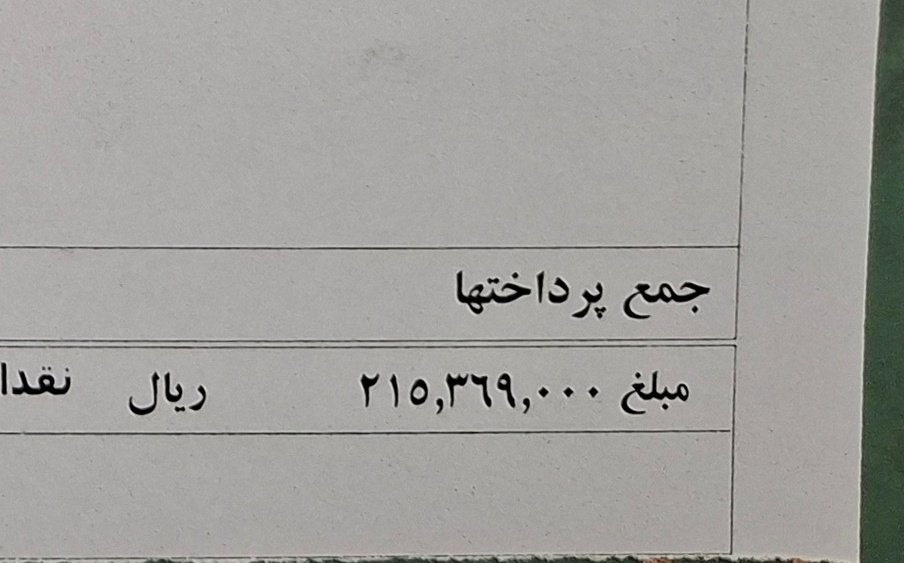 جمع پرداختها
مبلغ ۲۱٥,۳٦۹,۰۰۰ ریال نقدا